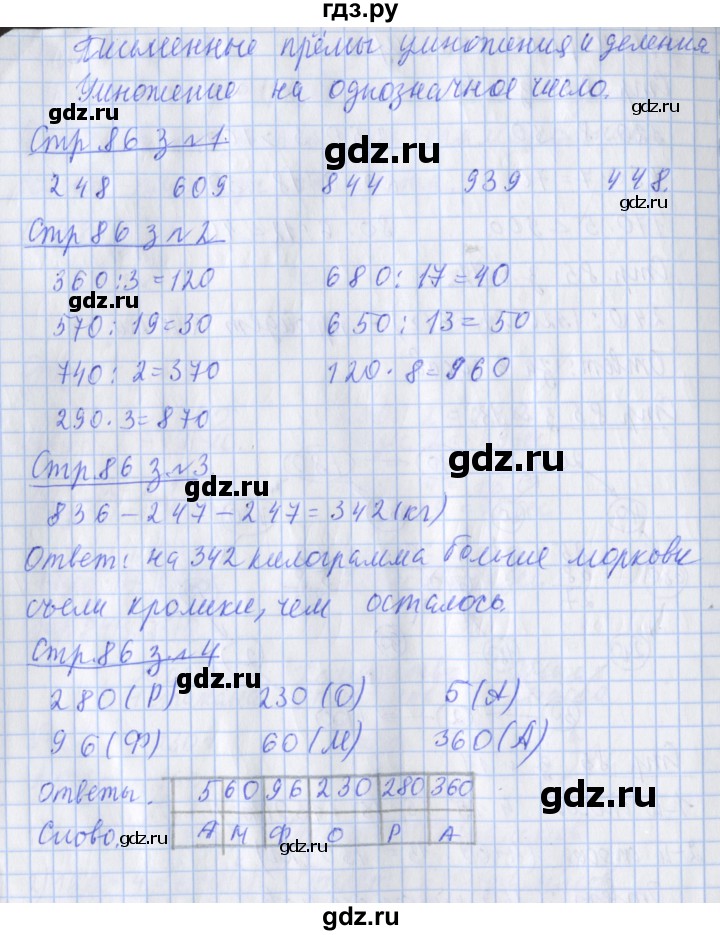 гдз.ру
Письменные прёмы умножения и деления
Умножение на однозначное число.
gdz.ru
Стр 86 з №1.
gdz.ru
gdz.ru
248 609 844 939 448.
gdz.ru
gdz.ru
Стр 86 з №2
360:3=120 680:17=40
gdz.ru
570:19=30 650:13=50
gdz.ru
740:2=370 120·8=960
gdz.ru
290·3=870
Стр.86 з.№3
gdz.ru
gdz.ru
836-247-247=342(кг)
Ответ: на 342 килограмма больше моркови
gdz.ru
съели кролики, чем осталось.
gdz.ru
Стр.86 з.№4
gdz.ru
280(Р) 230(О) 5(А)
96(Ф) 60(М) 360(А)
gdz.ru
gdz.ru
Ответы. 5 60 96 230 280 360
gdz.ru
Слово. А М Ф О Р А
gdz.ru
gdz.ru
gdz.ru